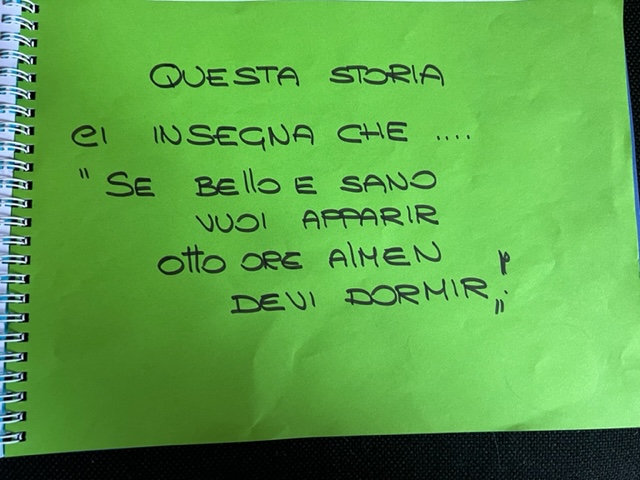 QUESTA STORIA
CI INSEGNA CHE ....
"SE BEllO E SANO
VUOI APPARIR
OTTO ORE AlMEN
DEVI DORMIR!"